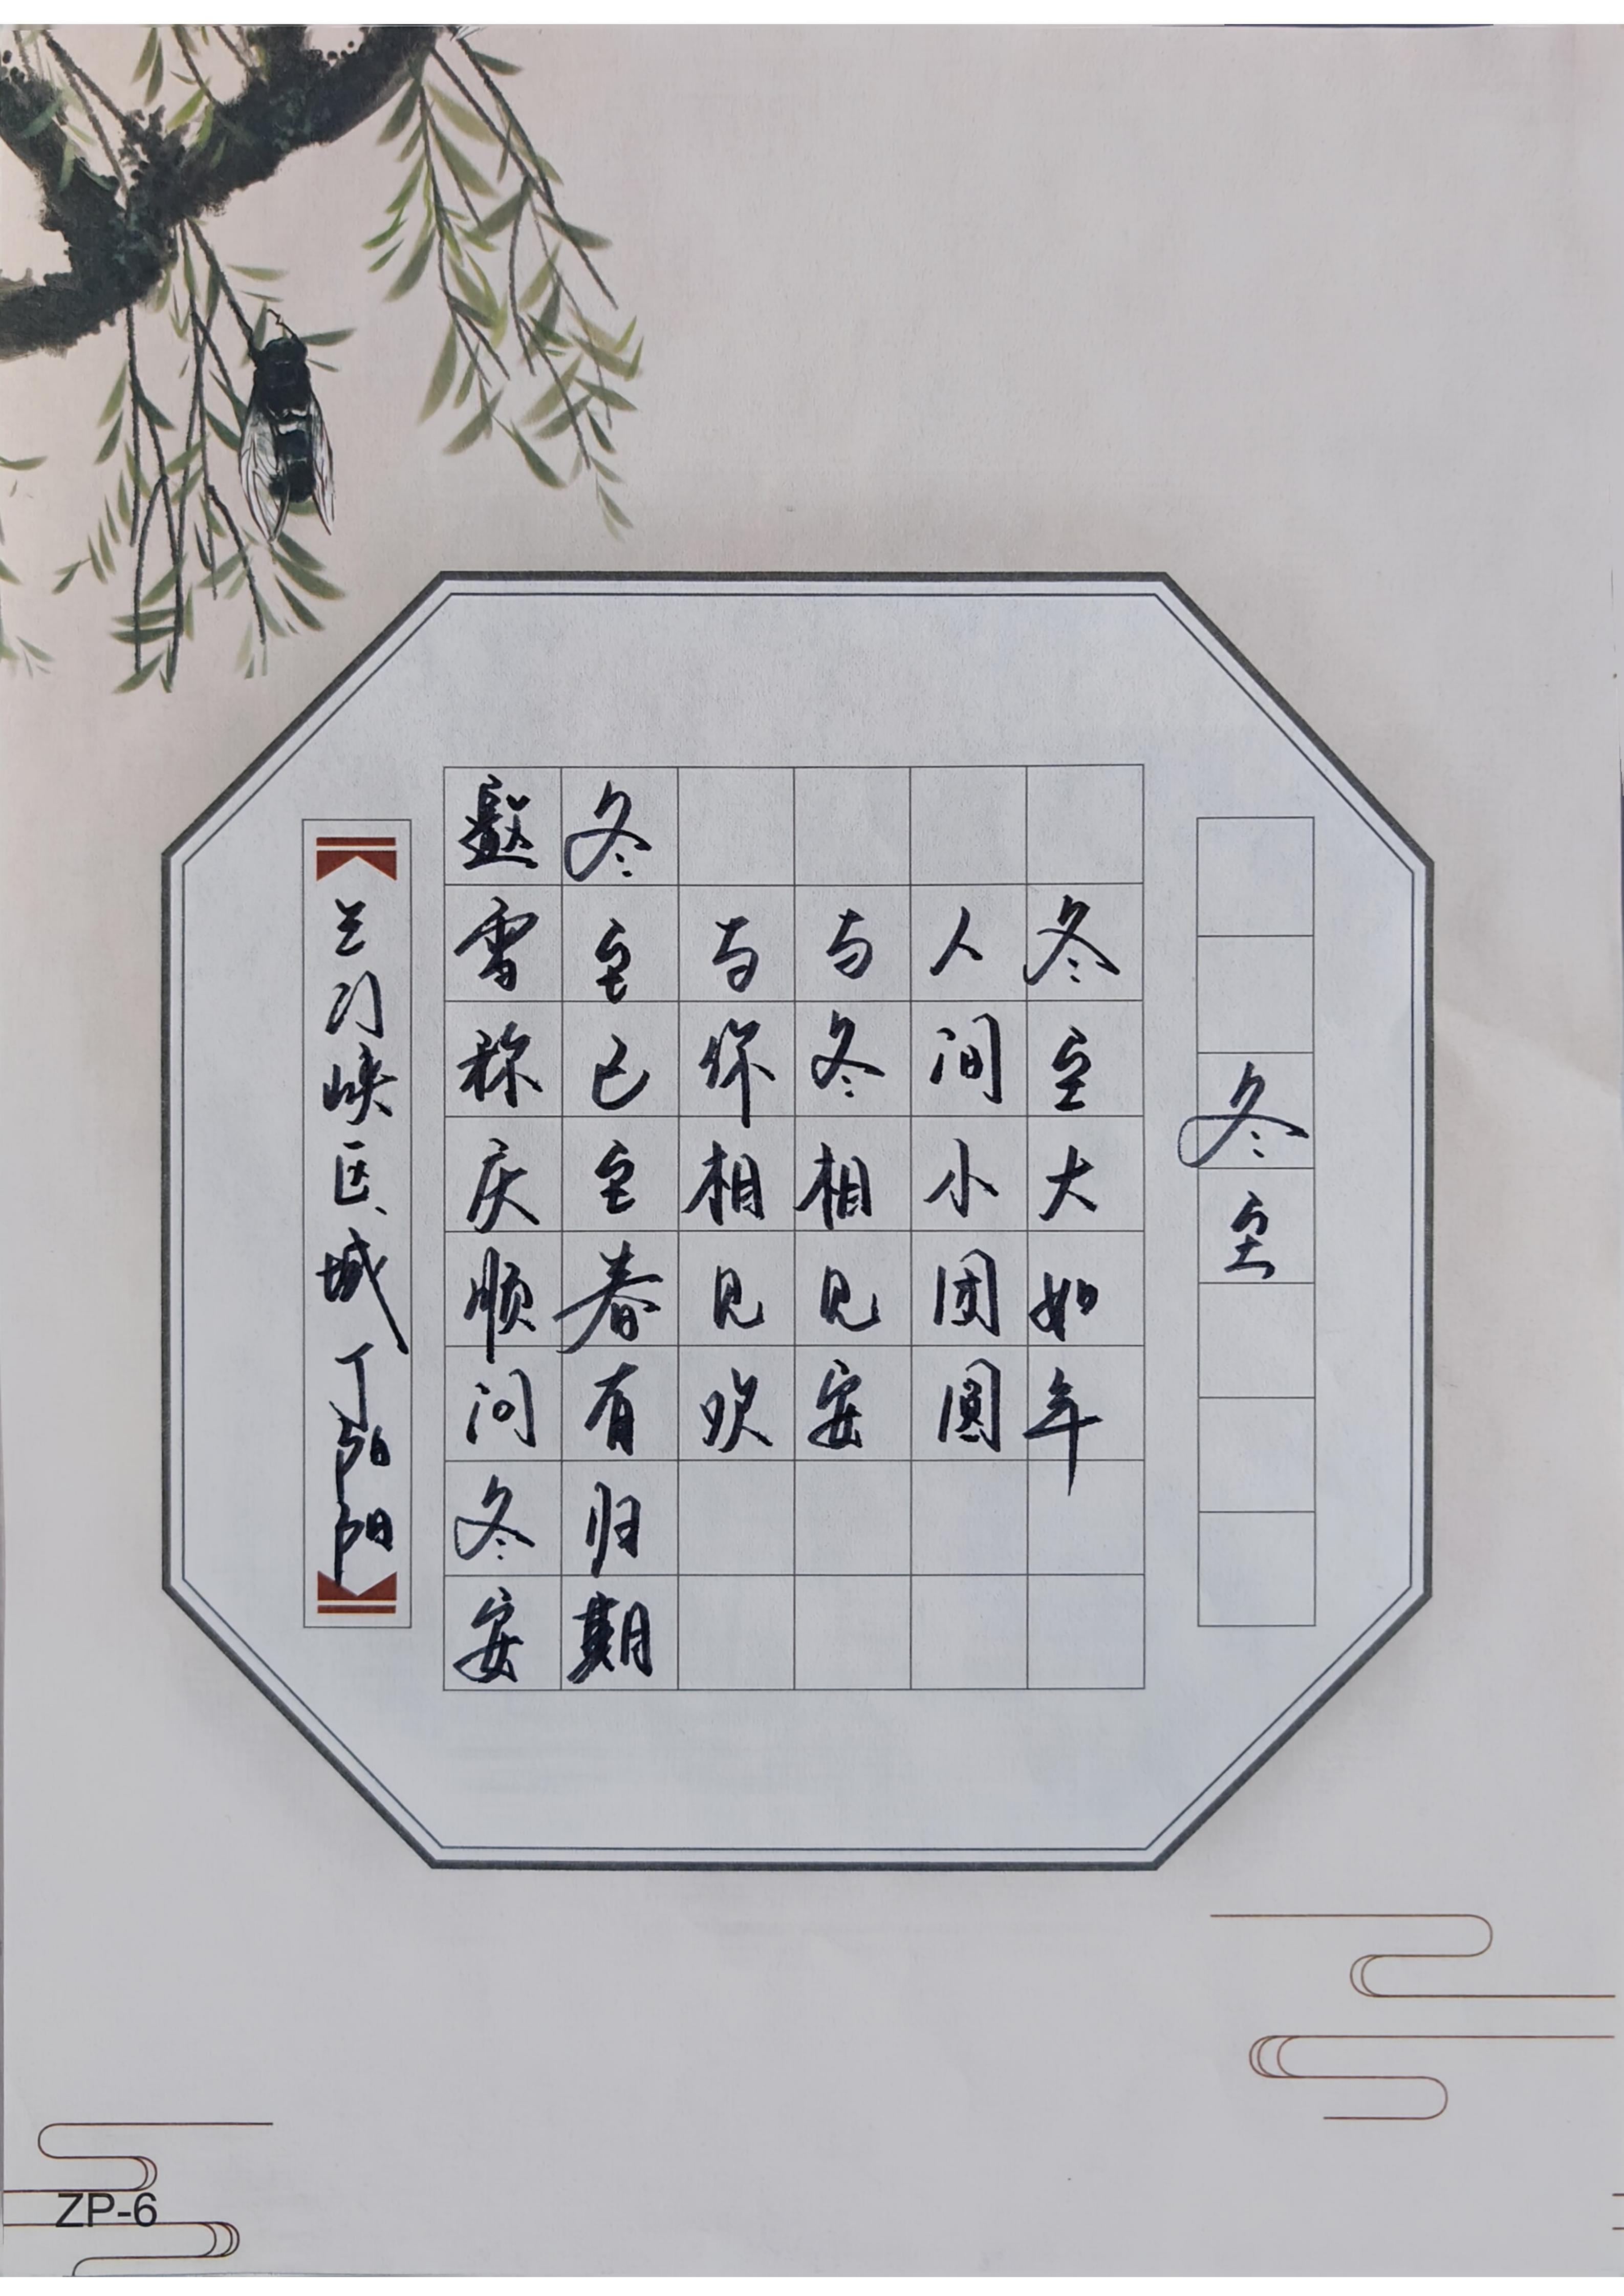 冬至
冬至大如年
人间小团圆
与冬相见安
与你相见欢
冬至已至春有归期
雪称庆顺问冬安
三门峡区域丁阳
ZP-6